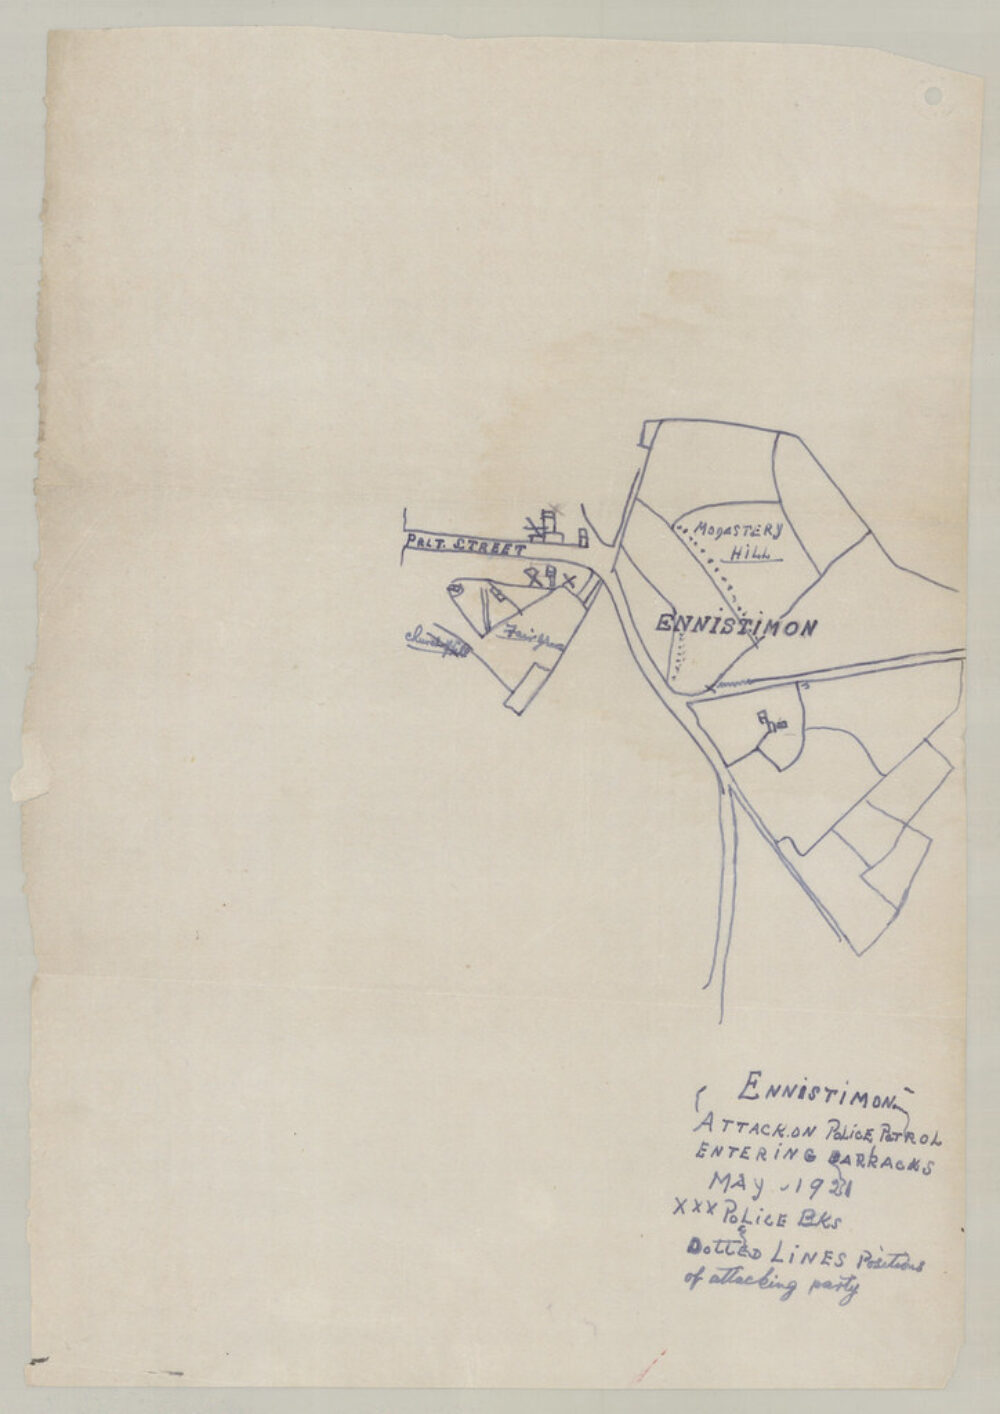 PRLT. STREET
MONASTERY
HILL
ENNISTIMON
Church Hill
ENNISTIMON
ATTACK ON POLICE PATROL
ENTERING BARRACKS
MAY - 1921
XXX POLICE BKS
DOTTED LINES Positions
of attacking party